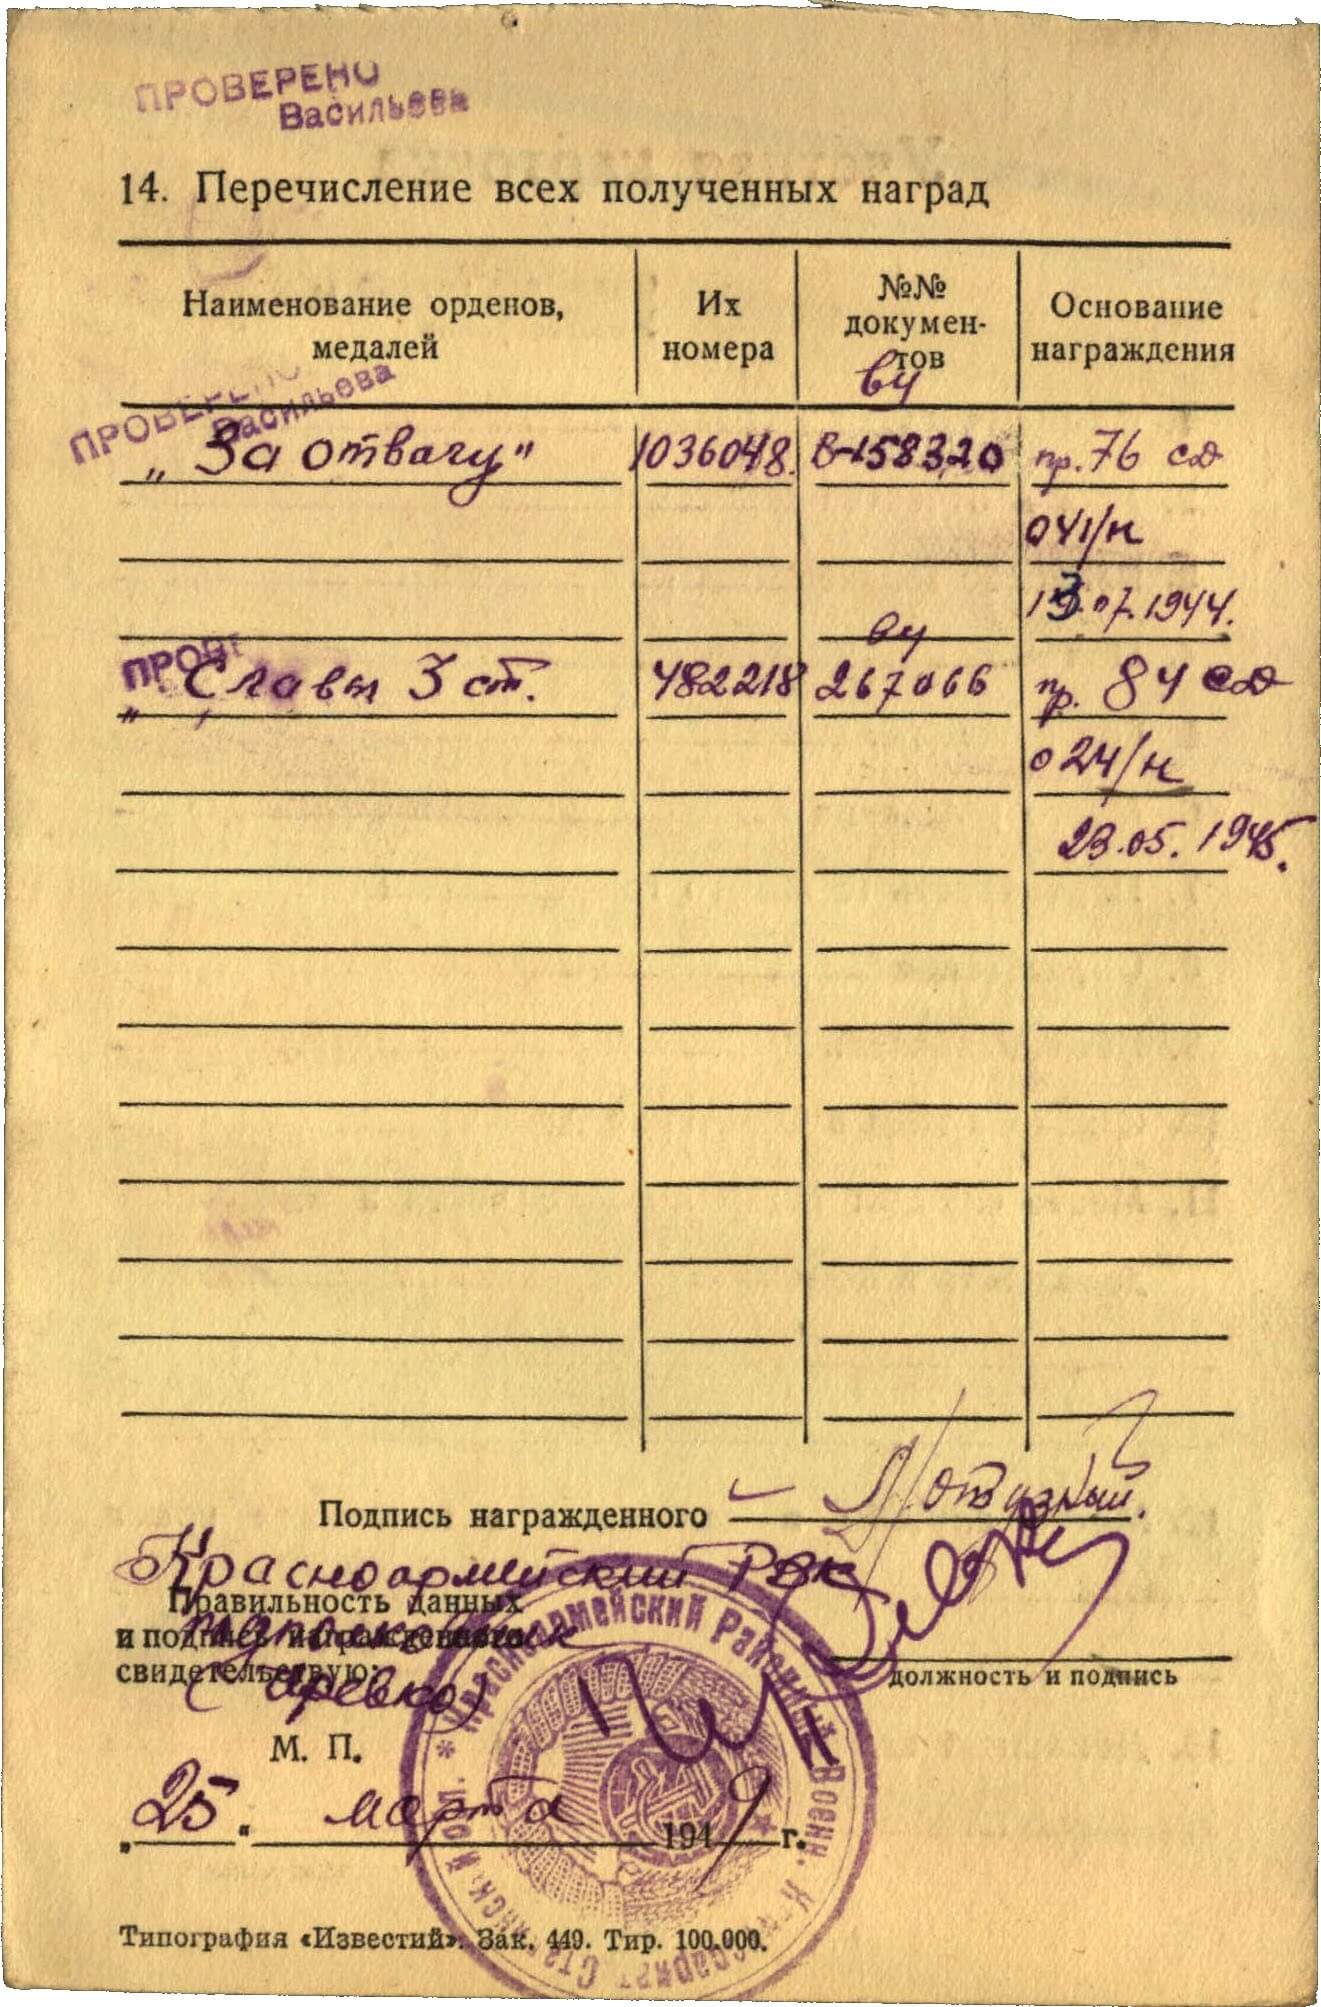 ПРОВЕРЕНО
Васильева
14. Перечисление всех полученных наград
Наименование орденов, медалей
Их номера
№№ докумен-тов
Основание награждения
ПРОВЕРЕНО
Васильева
ву
„За отвагу" 1036048. В-158320 пр. 76 сд
041/н
13.07.1944.
ву
ПРОВЕ
„Славы 3 ст. 482218 267066 пр. 84 сд
024/н
23.05.1945.
Подпись награжденного
Красноармейский РВК
Правильность данных
подполковник
и подпись награжденного
свидетельствую:
должность и подпись
М. П.
„25" марта 1949 г.
* Красноармейский Районный Воен.
Типография «Известий». Зак. 449. Тир. 100.000.